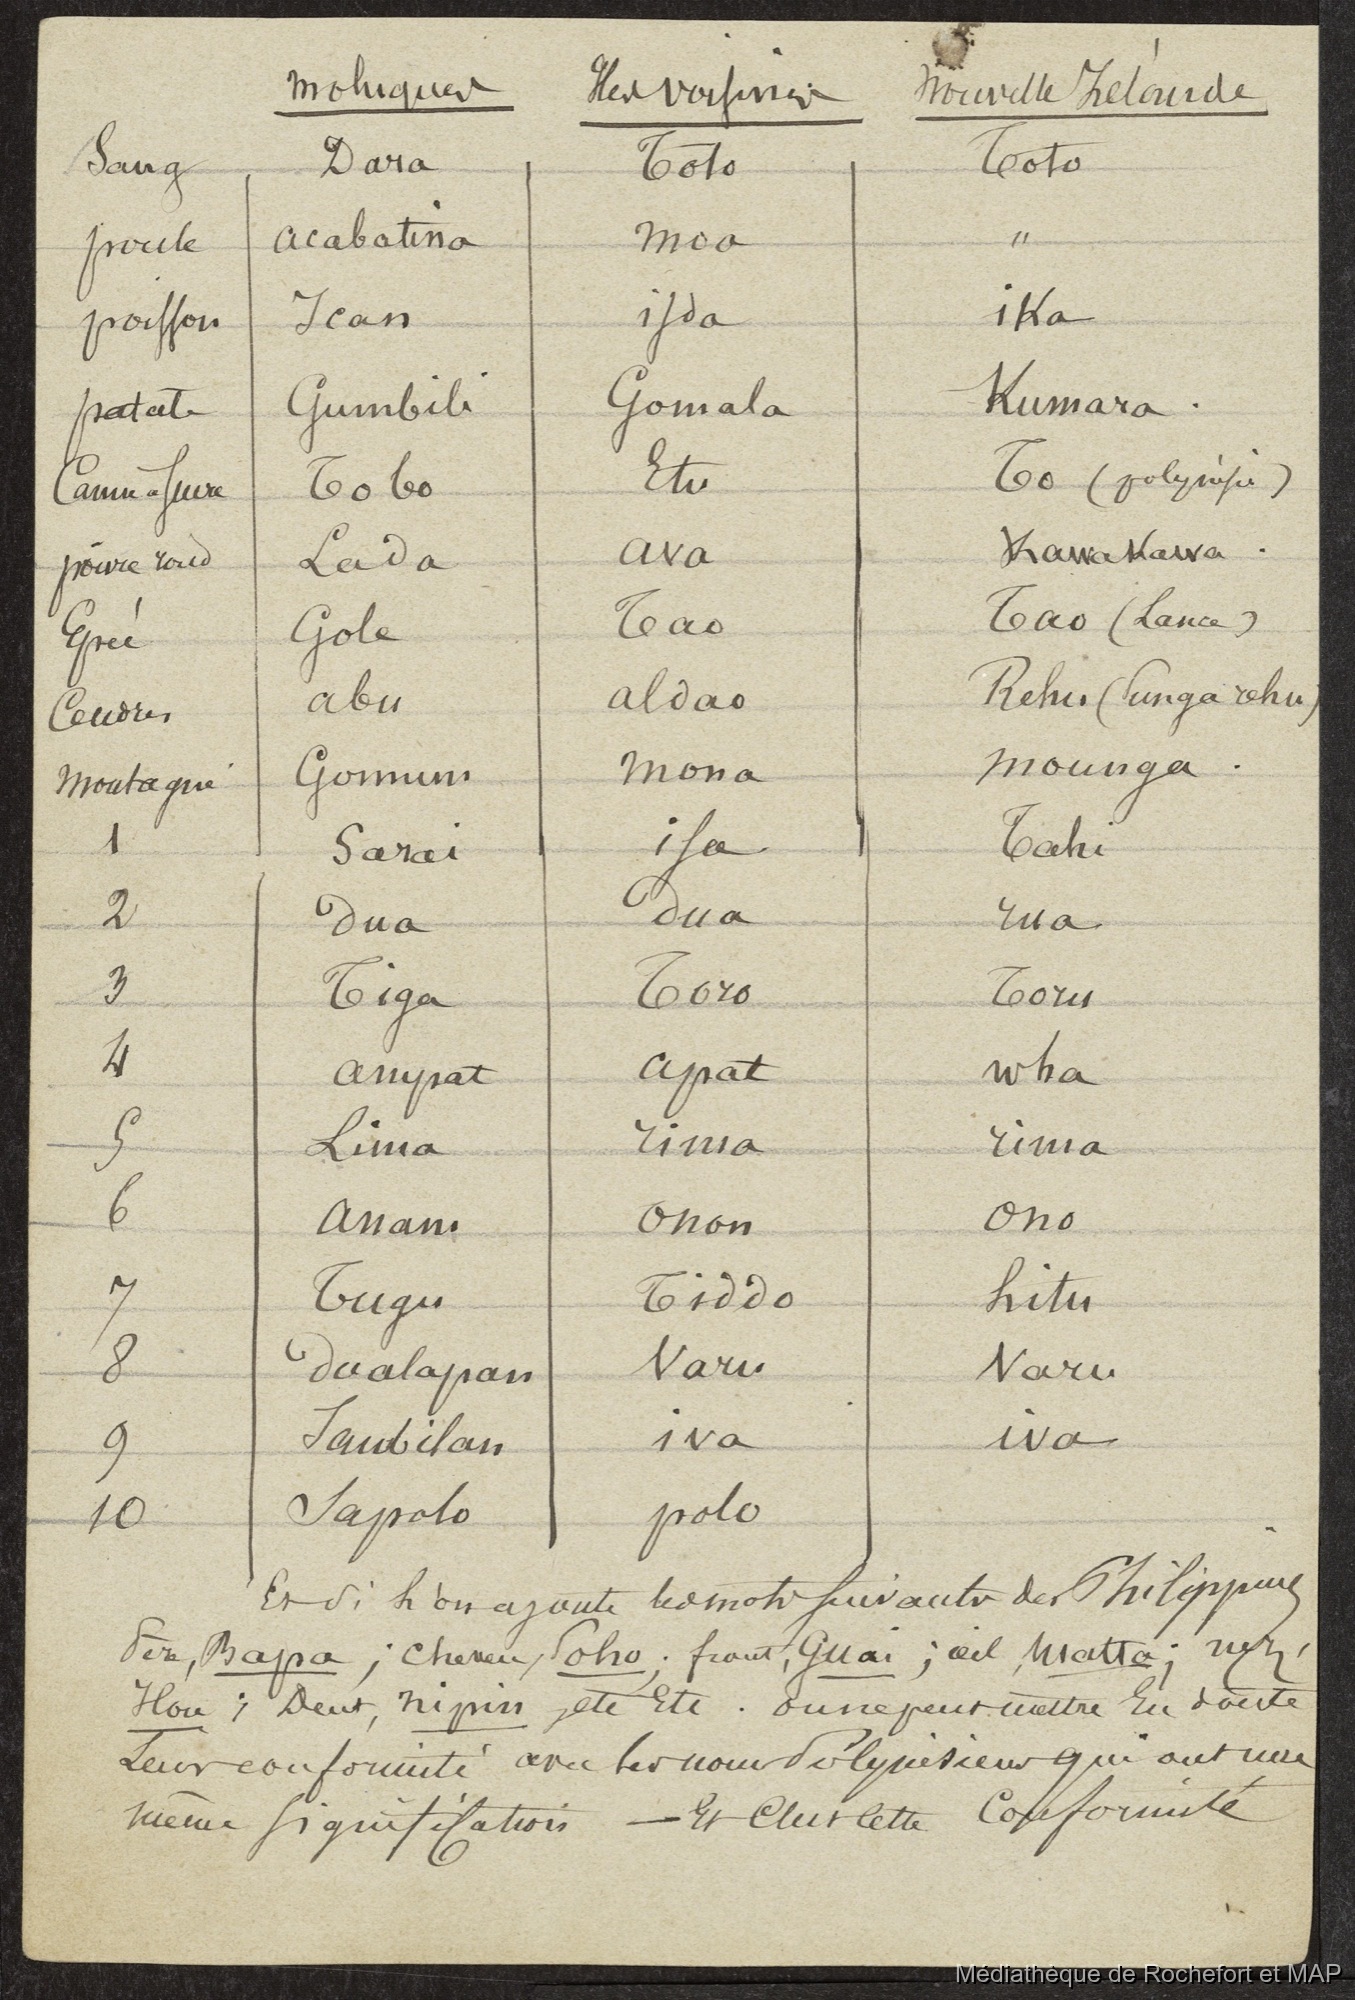 Moluques Iles voisines Nouvelle Zelande
Sang Dara Toto Toto
poule acabatina moa "
poisson Ican isda ika
patate Gumbili Gomala Kumara .
Canne a sucre Tobo Etu To (polynésie)
poivre rond Lada ava KawaKawa .
Epée Gole Tao Tao (Lance)
Cendres abu aldao Rehu (Punga rehu)
montagne Gonum mona mounga .
1 Sarai isa Tahi
2 dua dua rua
3 Tiga Toro Toru
4 ampat apat wha
5 Lima rima rima
6 anam onon ono
7 Tugu Tiddo hitu
8 dualapan Varu Varu
9 Sanbilan iva iva
10 Sapolo polo
Et si l'on ajoute les mots suivants des Philippines
Père, Bapa ; cheveu, Poho ; front, Guai ; œil, Matta ; nez,
Hou ; Dent, nipin, etc Etc . on ne peut mettre En doute
Leur conformité avec les noms Polynésiens qui ont une
même signification — Et C'est Cette Conformité
Médiathèque de Rochefort et MAP